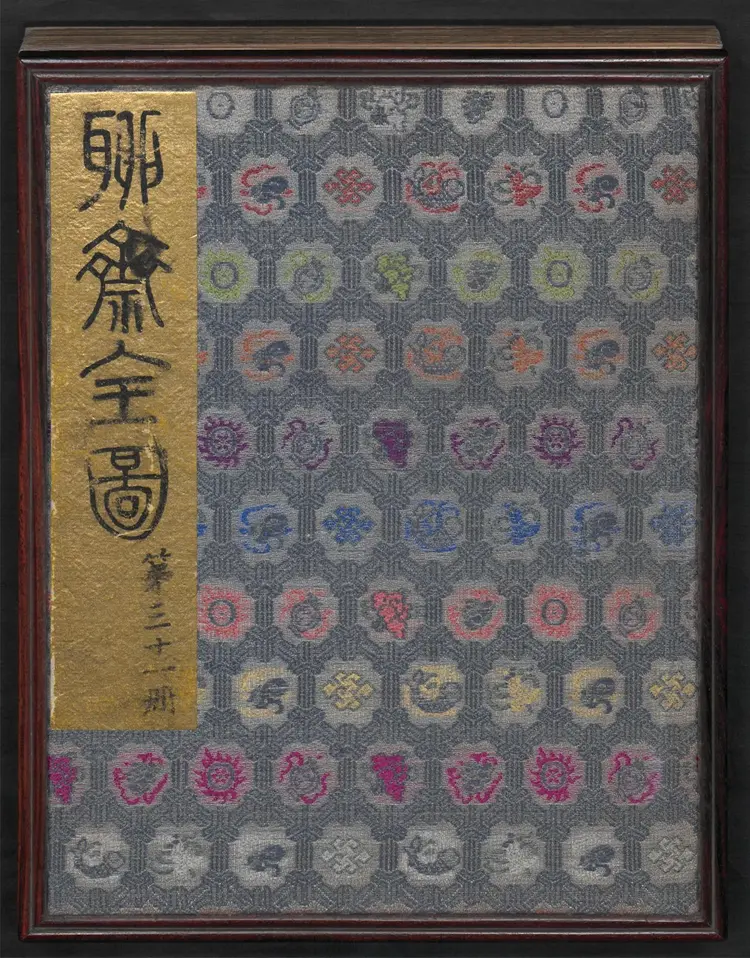 聊齋全圖
第三十一冊